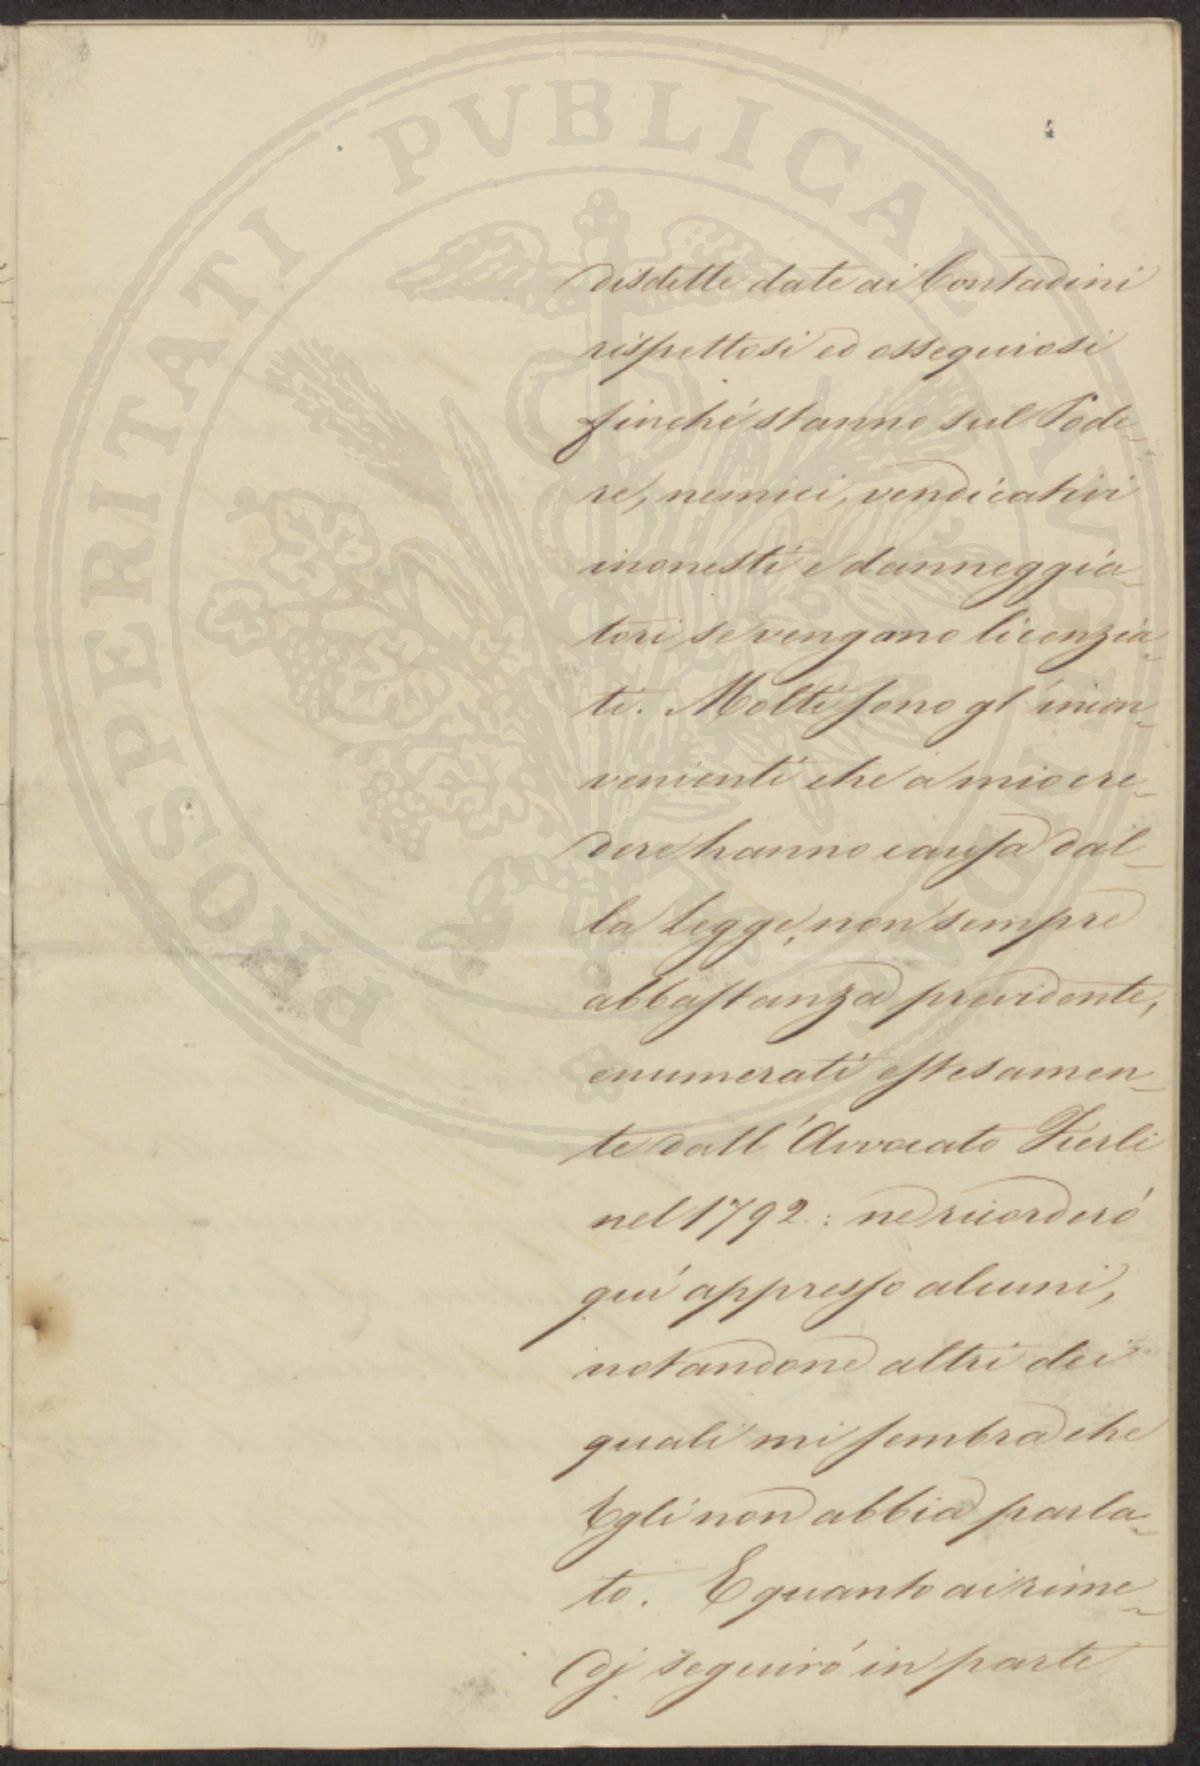 PROSPERITATI PUBLICAE AUGENDAE
disdette date ai Contadini
rispettosi ed ossequiosi
finché stanno sul Pode-
re, nemici, vendicativi
inonesti e danneggia-
tori se vengano licenzia-
ti. Molti sono gl'incon-
venienti che a mio cre-
dere hanno causa dal-
la Legge, non sempre
abbastanza previdente,
enumerati estesamen-
te dall'Avvocato Fierli
nel 1792.: ne ricorderó
qui appresso alcuni,
notandone altri dei
quali mi sembra che
Egli non abbia parla-
to. E quanto ai rime-
dj seguiró in parte